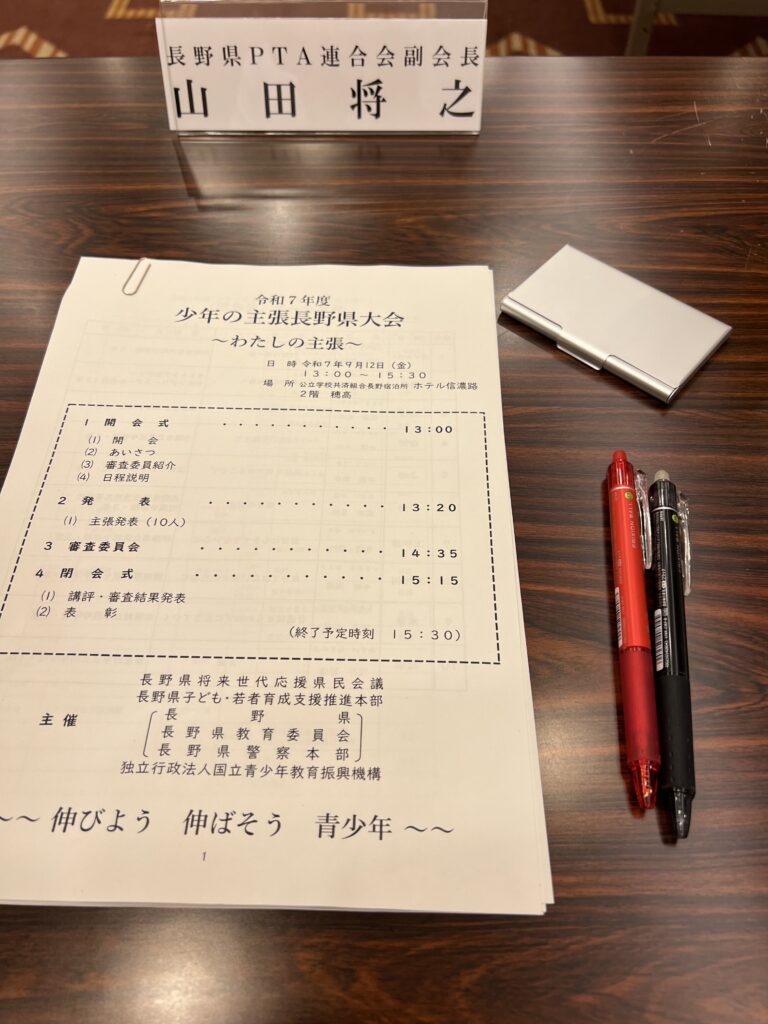 長野県PTA連合会副会長
山田将之
令和7年度
少年の主張長野県大会
～わたしの主張～
日 時 令和7年9月12日（金）
13：00 ～ 15：30
場 所 公立学校共済組合長野宿泊所 ホテル信濃路
2階 穂高
1 開会式 ・・・・・・・・・・・ 13：00
(1) 開 会
(2) あいさつ
(3) 審査委員紹介
(4) 日程説明
2 発 表 ・・・・・・・・・・・ 13：20
(1) 主張発表（10人）
3 審査委員会 ・・・・・・・・・・・ 14：35
4 閉会式 ・・・・・・・・・・・ 15：15
(1) 講評・審査結果発表
(2) 表 彰
（終了予定時刻 15：30）
長野県将来世代応援県民会議
長野県子ども・若者育成支援推進本部
主催
長野県
長野県教育委員会
長野県警察本部
独立行政法人国立青少年教育振興機構
～～ 伸びよう 伸ばそう 青少年 ～～
1